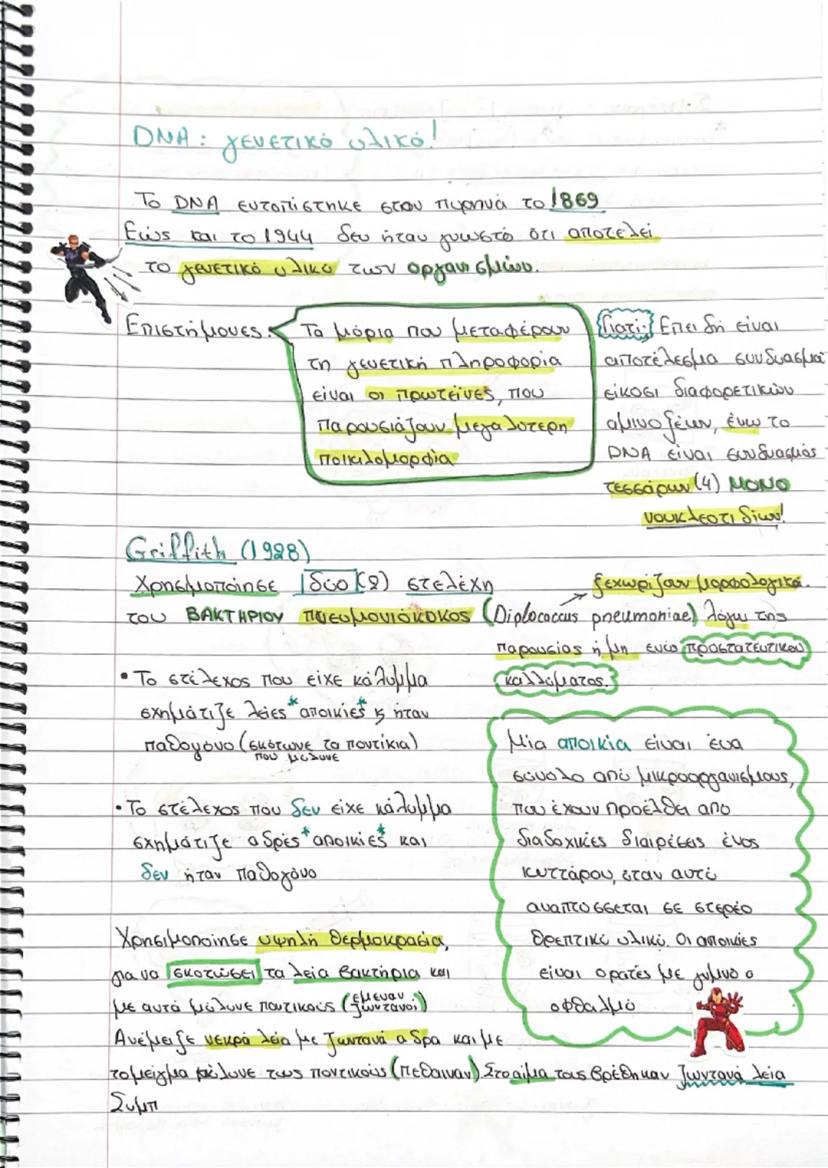 DNA: γενετικό υλικό!
Το DNA εντοπίστηκε στον πυρηνά το 1869
Εώς και το 1944 δεν ήταν γνωστό ότι αποτελεί
το γενετικό υλικό των οργανισμών.
Επιστήμονες:
Τα μόρια που μεταφέρουν
τη γενετική πληροφορία
είναι οι πρωτεΐνες, που
παρουσιάζουν μεγαλύτερη
ποικιλομορφία
Γιατί: Επειδή είναι
αποτέλεσμα συνδυασμού
είκοσι διαφορετικών
αμινοξέων, ένω το
DNA είναι συνδυασμός
τεσσάρων (4) ΜΟΝΟ
νουκλεοτιδίων!
Griffith (1928)
Χρησιμοποίησε δύο (2) στελέχη
ξεχωρίζουν μορφολογικά
του ΒΑΚΤΗΡΙΟΥ πνευμονιόκοκος (Diplococcus pneumoniae) λόγω της
παρουσίας ή μη ενώς προστατευτικού
καλλύματος.
• Το στέλεχος που είχε κάλυμμα
σχημάτιζε λείες *αποικίες* ξ ήταν
παθογόνο (σκότωνε τα ποντίκια)
που μόλυνε
• Το στέλεχος που δεν είχε κάλυμμα
σχημάτιζε αδρές *αποικίες* και
δεν ήταν παθογόνο
Μία αποικία είναι ένα
σύνολο από μικροοργανισμους,
που έχουν προέλθει από
διαδοχικές διαιρέσεις ένος
κυττάρου, όταν αυτό
αναπτύσσεται σε στερέο
θρεπτικό υλικό. Οι αποικίες
είναι ορατές με γυμνο ο
οφθαλμό
Χρησιμοποίησε υψηλή θερμοκρασία,
για να σκοτώσει τα λεία βακτήρια και
με αυτά μόλυνε ποντικούς (έμειναν ζωντανοί)
Ανέμειξε νεκρά λεία με ζωντανά αδρα και με
το μείγμα μόλυνε τους ποντικούς (πέθαιναν) Στο αίμα τους βρέθηκαν ζωντανά λεία
Συμπ